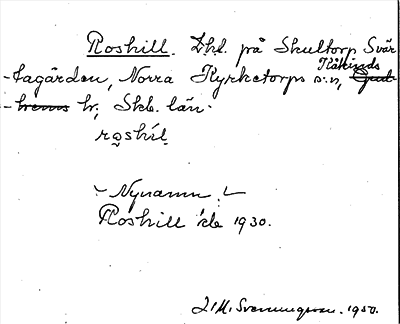 Roshill. Lht. på Skultorp Svar
-tagården, Norra Kyrketorps s:n, Kåkinds
hr, Skb. län.
roshíl
Nynamn.
Roshill 1930.
J. M. Svenningsson. 1950.